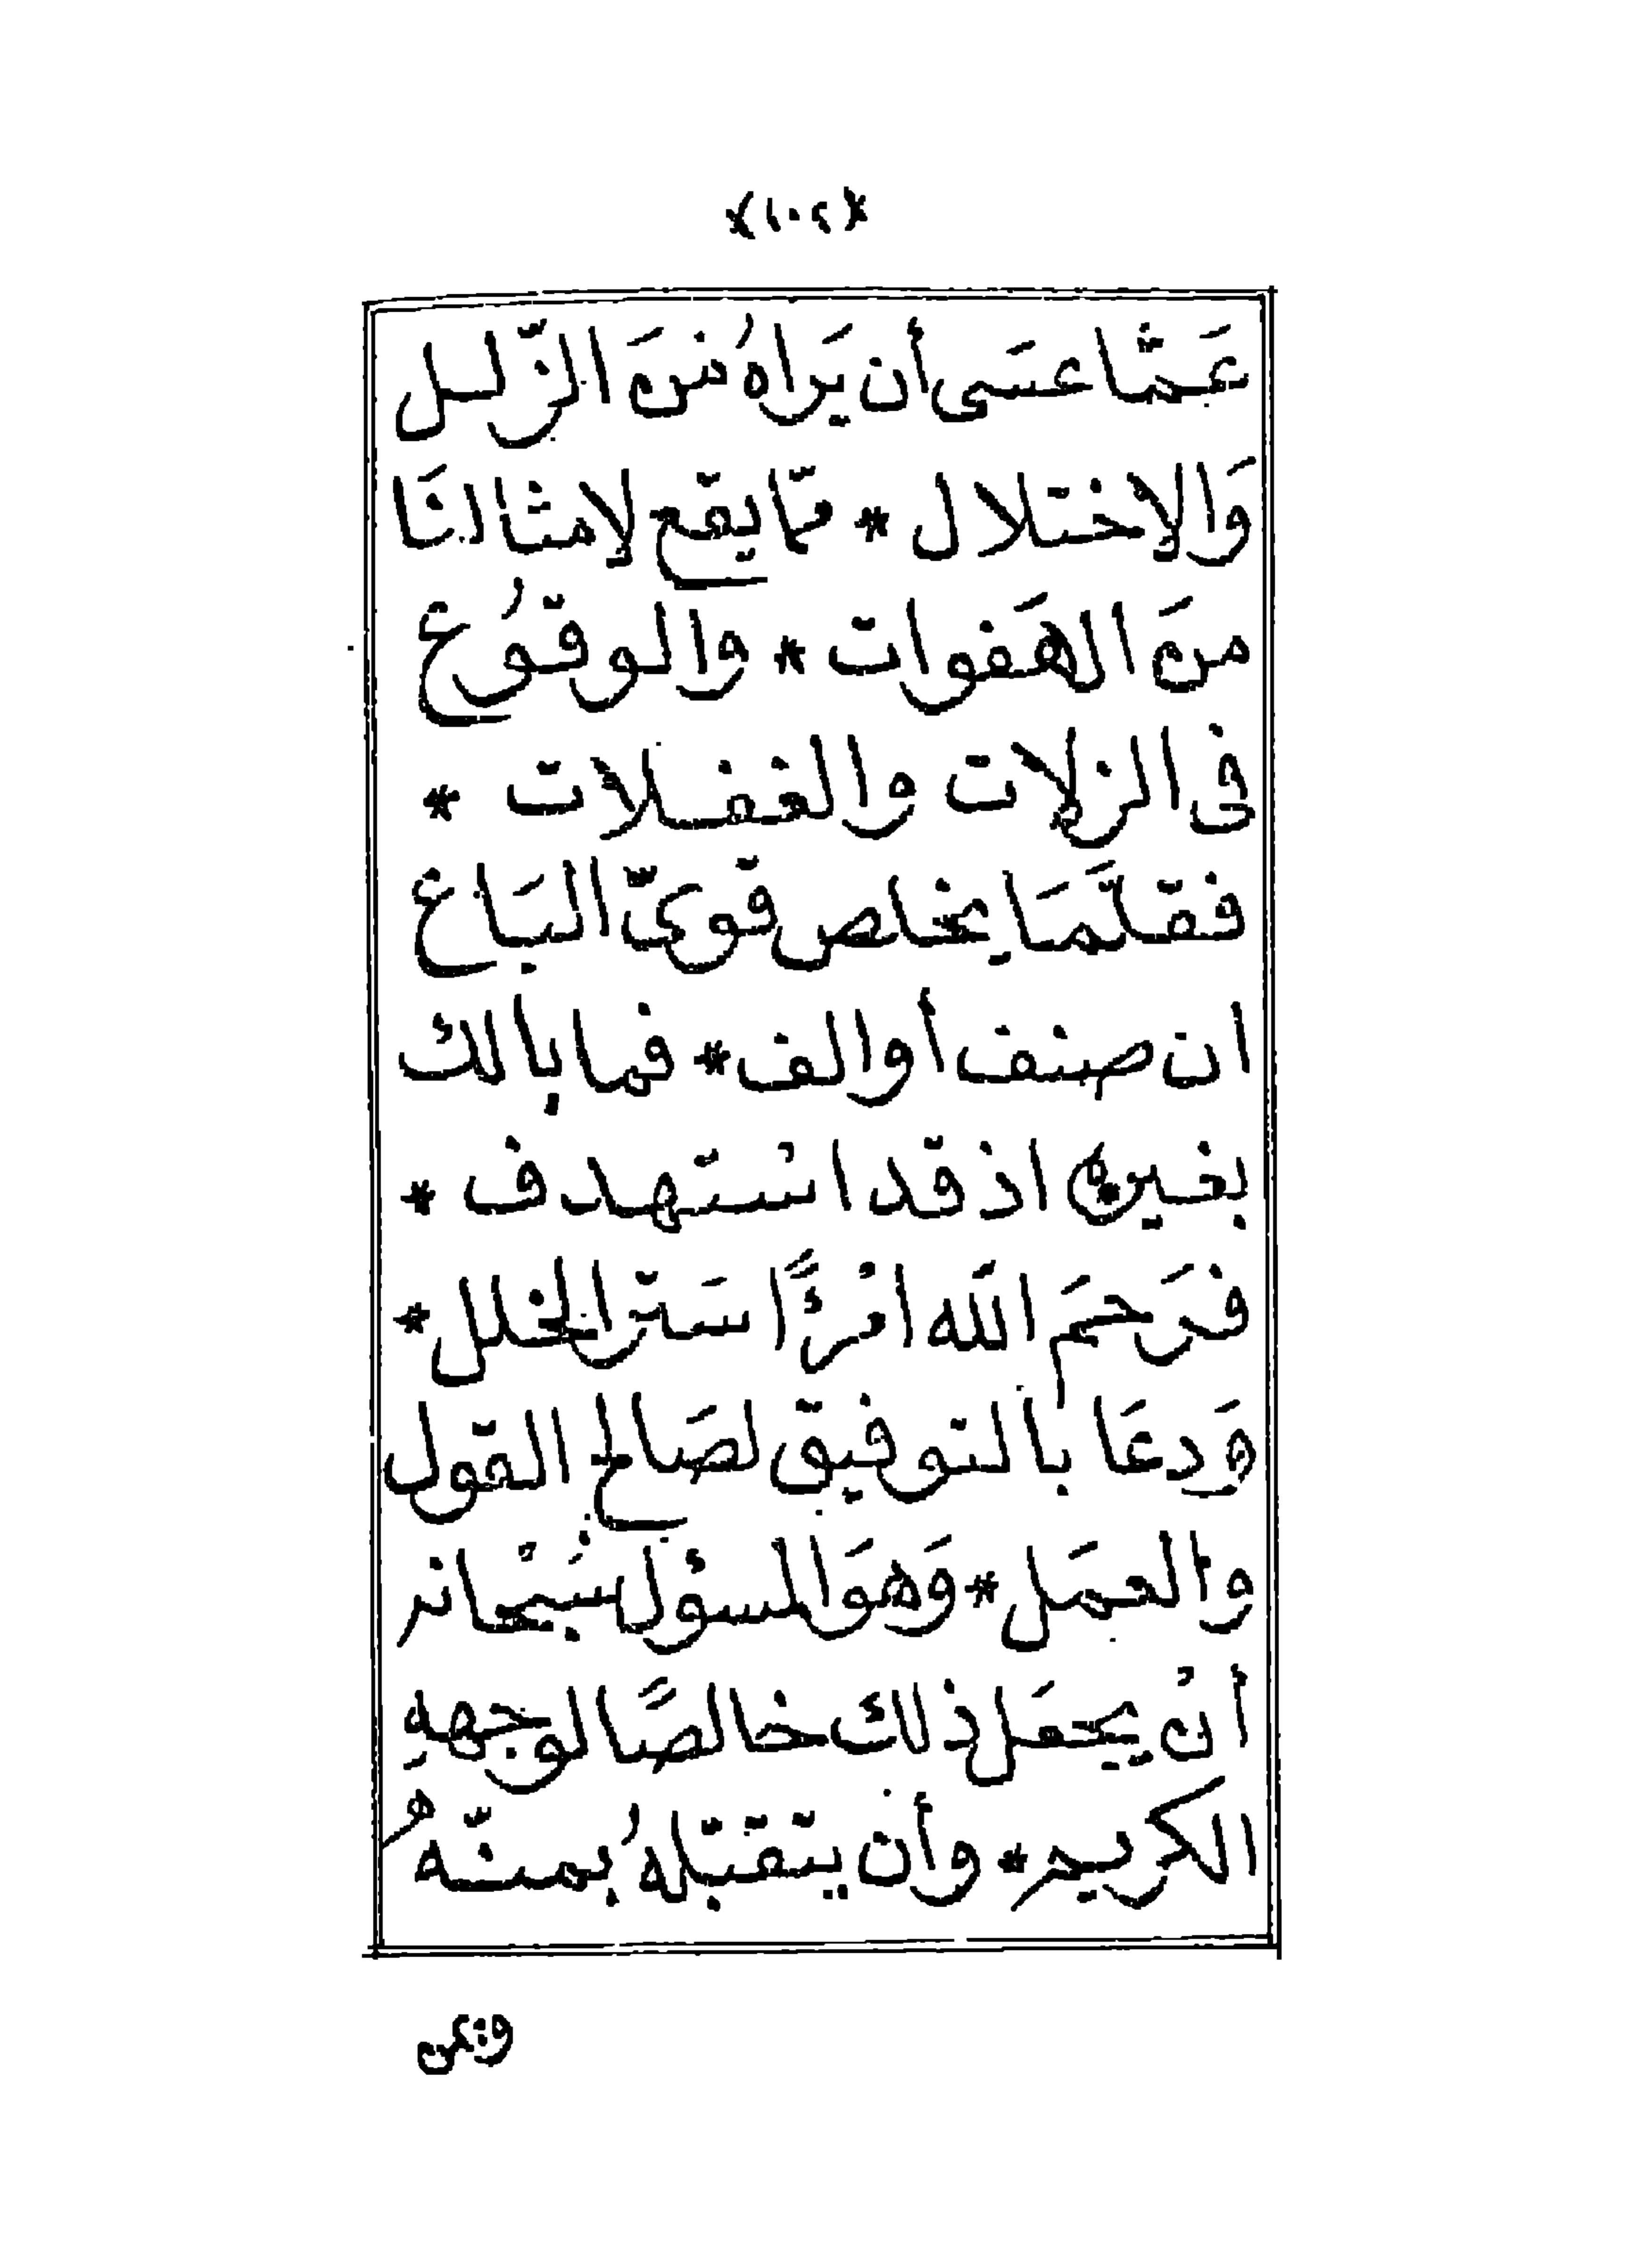 ﴿١٠٢﴾
عَمَّا عسَى أن يَرَاهُ مِنَ الزَّلل
وَالإختلال * ممّا يقع لإمثالنَا
منَ الهَفوات * والوقوُع
فى الزلات والغفلات *
فقلَّمَا يخلص قوىّ البَاع
ان صنف أوالف * فما بالك
بغيره اذ قد اسْتهدف *
فرَحمَ اللَه امْرءًا سَترَ الخلل *
وَدعَا بالتوفيق لصَالح القول
والعمَل * وَهوَ المسؤل سُبْحانه
أنْ يجعَل ذلك خالصًا لوجههِ
الكريم * وأن يتقبّلهُ بمنّه
وَمن